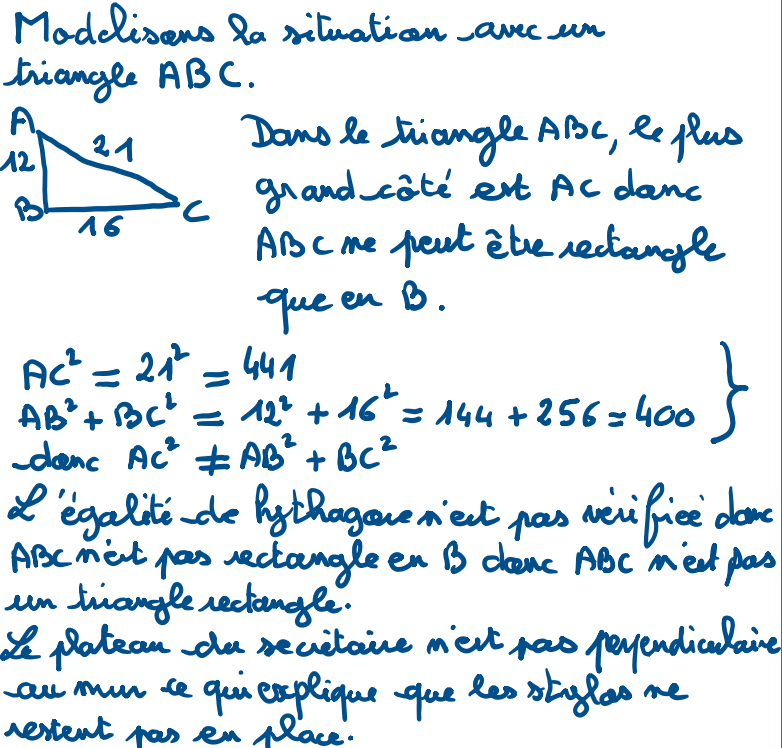 Modélisons la situation avec un
triangle ABC.
A
12
21
B
16
C
Dans le triangle ABC, le plus
grand côté est AC donc
ABC ne peut être rectangle
que en B.
AC² = 21² = 441
AB² + BC² = 12² + 16² = 144 + 256 = 400 }
donc AC² ≠ AB² + BC²
L'égalité de Pythagore n'est pas vérifiée donc
ABC n'est pas rectangle en B donc ABC n'est pas
un triangle rectangle.
Le plateau du secrétaire n'est pas perpendiculaire
au mur ce qui explique que les stylos ne
restent pas en place.